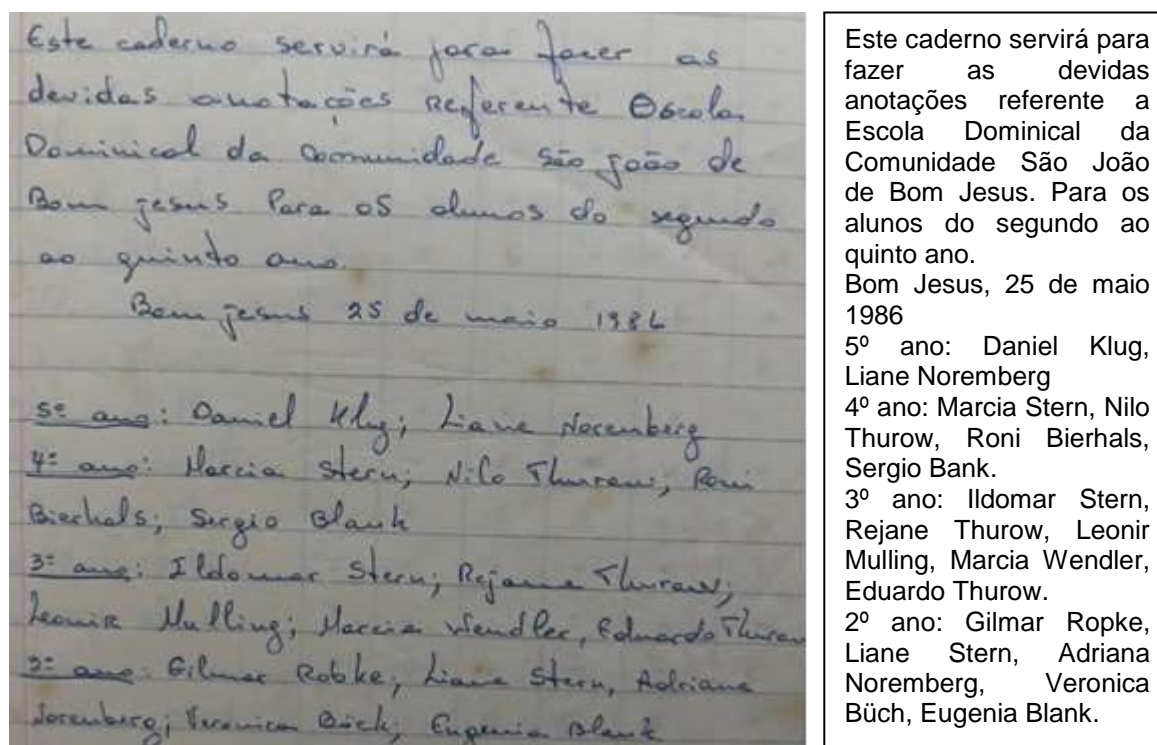 Este caderno servirá para fazer as
devidas anotações Referente Escola
Dominical da Comunidade São João de
Bom jesus Para os alunos do segundo
ao quinto ano.
Bom jesus 25 de maio 1986
5º ano: Daniel Klug; Liane Norenberg
4º ano: Marcia Stern; Nilo Thurow; Roni
Bierhals; Sergio Blank
3º ano: Ildomar Stern; Rejane Thurow;
Leonir Mulling; Marcia Wendler, Eduardo Thurow
2º ano: Gilmar Robke; Liane Stern, Adriana
Norenberg; Veronica Bück; Eugenia Blank
Este caderno servirá para
fazer as devidas
anotações referente a
Escola Dominical da
Comunidade São João
de Bom Jesus. Para os
alunos do segundo ao
quinto ano.
Bom Jesus, 25 de maio
1986
5º ano: Daniel Klug,
Liane Noremberg
4º ano: Marcia Stern, Nilo
Thurow, Roni Bierhals,
Sergio Bank.
3º ano: Ildomar Stern,
Rejane Thurow, Leonir
Mulling, Marcia Wendler,
Eduardo Thurow.
2º ano: Gilmar Ropke,
Liane Stern, Adriana
Noremberg, Veronica
Büch, Eugenia Blank.